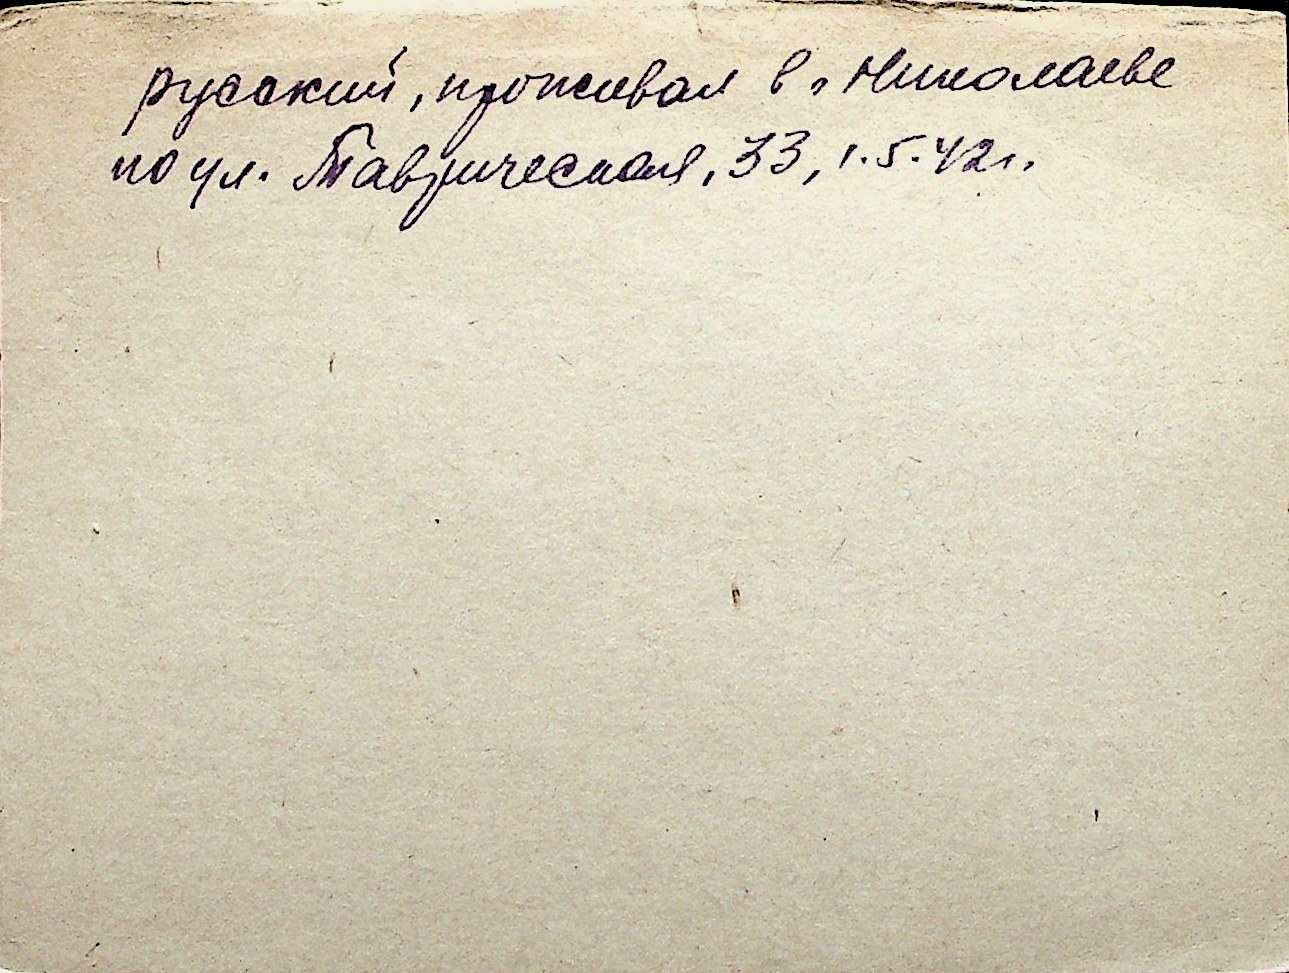 русский, проживал в г. Николаеве
по ул. Таврическая, 33, 1.5.42 г.